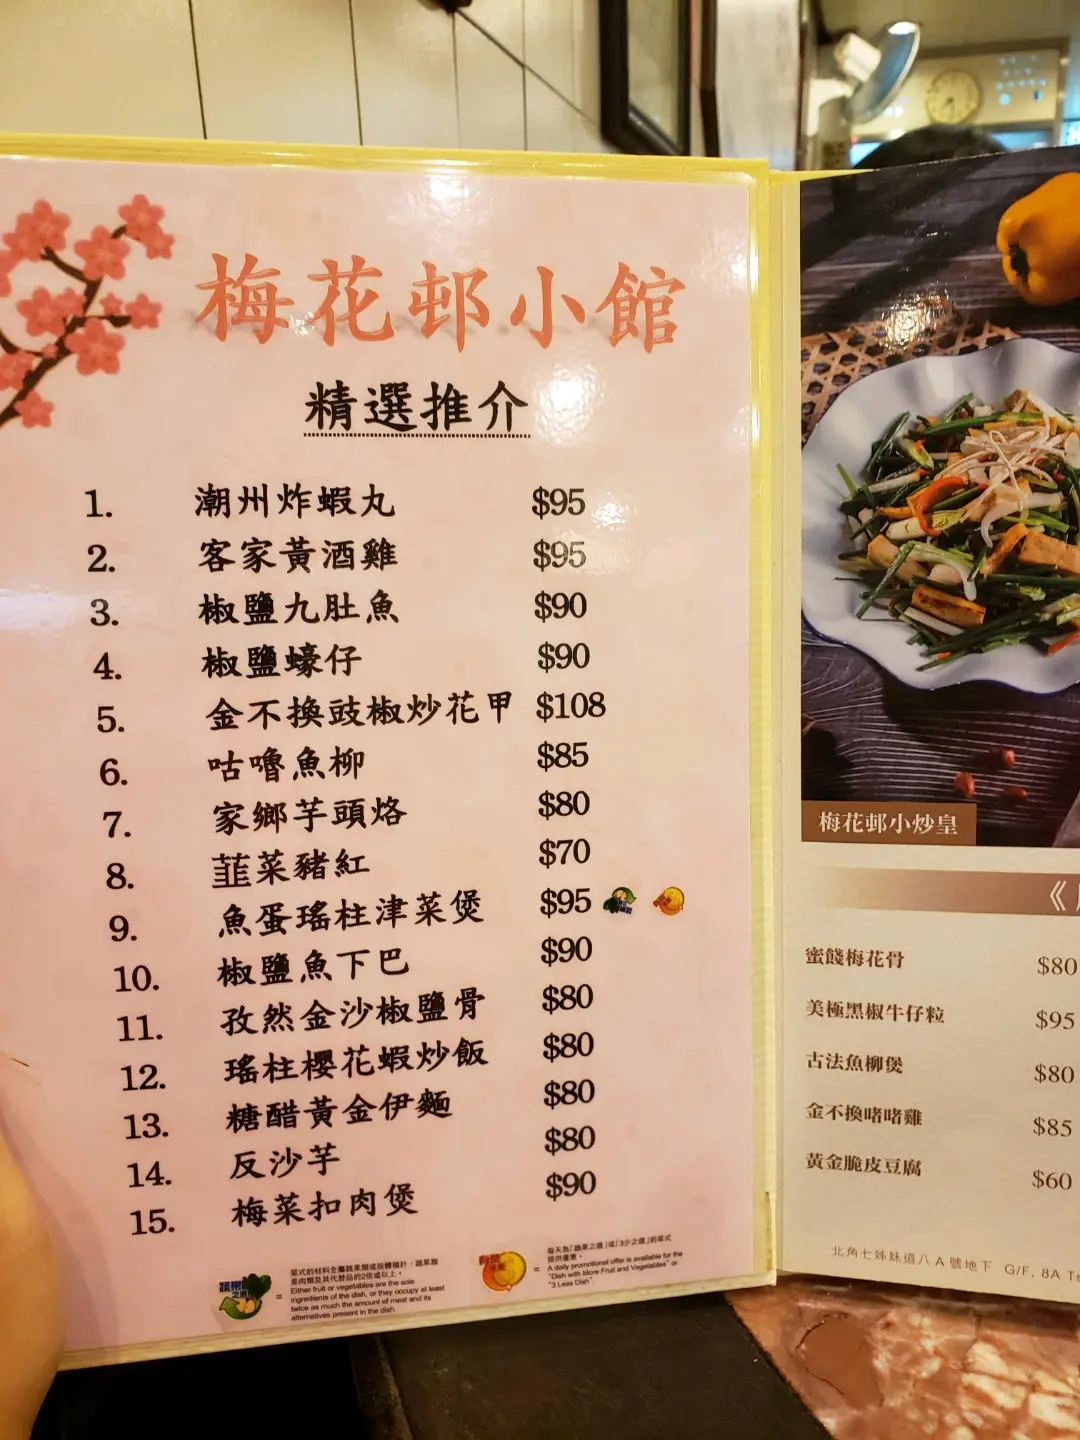 梅花邨小館
精選推介
1. 潮州炸蝦丸 $95
2. 客家黃酒雞 $95
3. 椒鹽九肚魚 $90
4. 椒鹽蠔仔 $90
5. 金不換豉椒炒花甲 $108
6. 咕嚕魚柳 $85
7. 家鄉芋頭烙 $80
8. 韮菜豬紅 $70
9. 魚蛋瑤柱津菜煲 $95
10. 椒鹽魚下巴 $90
11. 孜然金沙椒鹽骨 $80
12. 瑤柱櫻花蝦炒飯 $80
13. 糖醋黃金伊麵 $80
14. 反沙芋 $80
15. 梅菜扣肉煲 $90
蔬果之選
=
菜式的材料全屬蔬果類或按體積計，蔬果類
是肉類及其代替品的2倍或以上。
Either fruit or vegetables are the sole
ingredients of the dish, or they occupy at least
twice as much the amount of meat and its
alternatives present in the dish.
=
每天為「蔬果之選」或「3少之選」的菜式
提供優惠。
A daily promotional offer is available for the
"Dish with More Fruit and Vegetables" or
"3 Less Dish".
梅花邨小炒皇
《
蜜餞梅花骨 $80
美極黑椒牛仔粒 $95
古法魚柳煲 $80
金不換啫啫雞 $85
黃金脆皮豆腐 $60
北角七姊妹道八A號地下 G/F, 8A